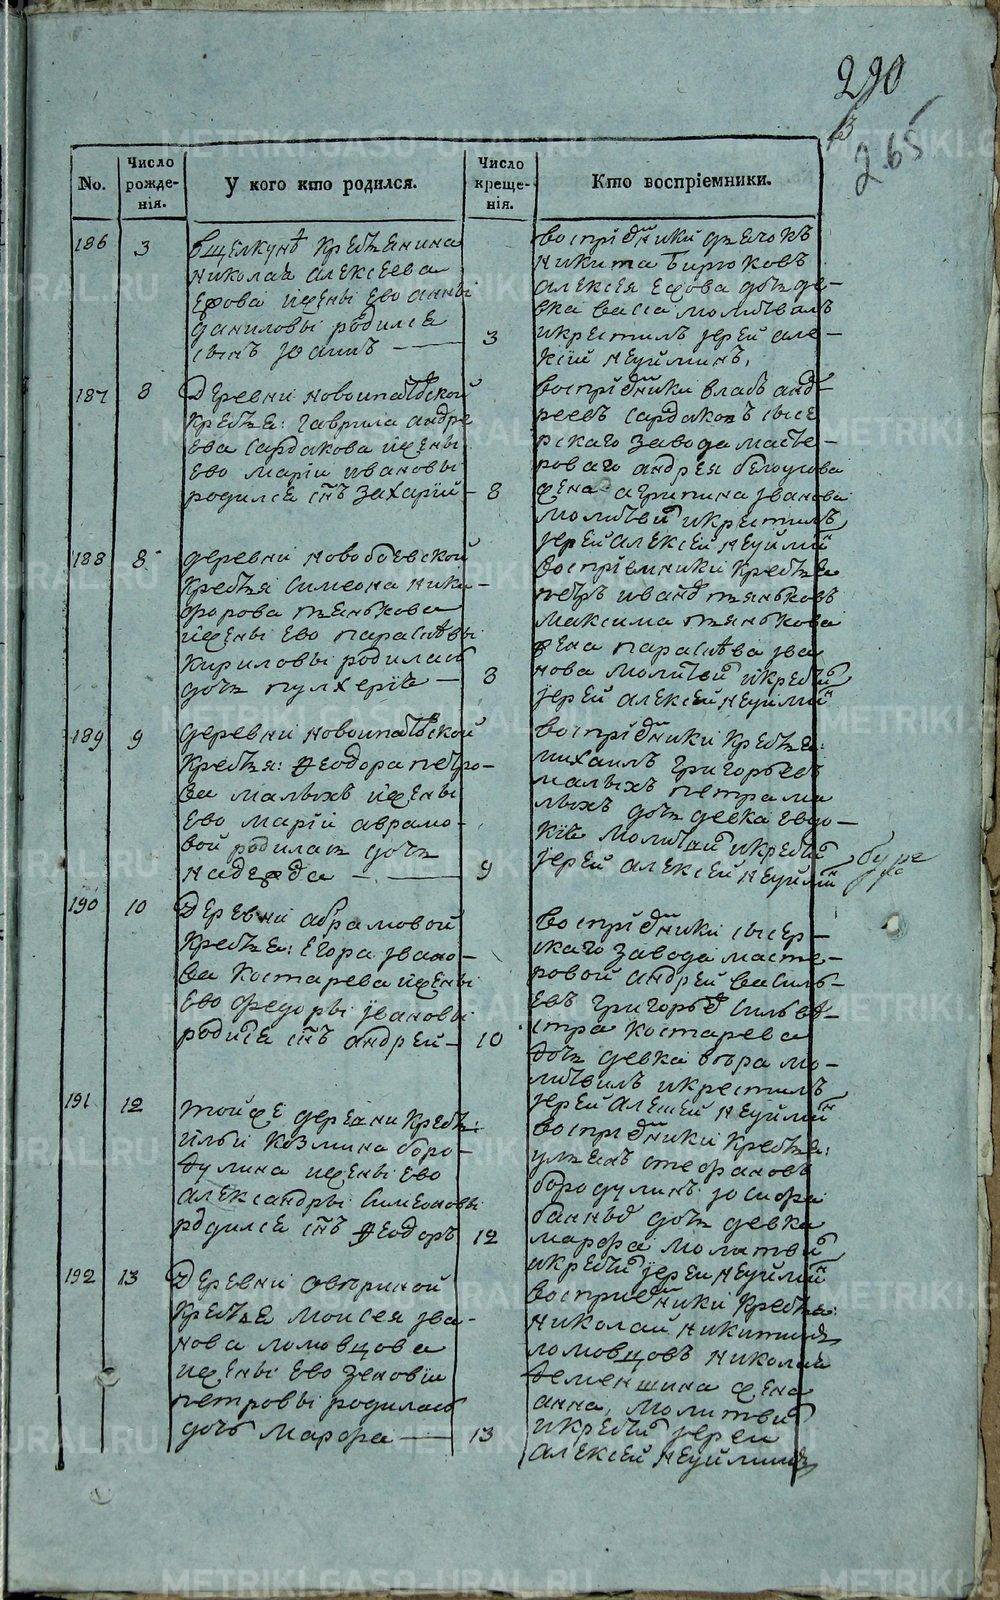 290
265
No.
Число рожде-нія.
У кого кто родился.
Число креще-нія.
Кто воспріемники.
186
3
вщелкунѣ крестьянина
николая алексеева
ефова ижены ево анны
даниловы родился
сынъ Iоаннъ
3
воспріемники дьячокъ
никита бирюковъ
алексея ефова дочь де-
вка васса молитвалъ
икрестилъ Iерей але-
ксій неуйминъ,
187
8
Деревни новоипатовской
крестья: гаврила андре
ева сардакова ижены
ево маріи ивановы
родился снъ захарій
8
воспріемники власъ анд-
реевъ сардаковъ сысе
рскаго завода масте-
роваго андрея белоусова
жена агрипина Iванова
молитвил икрестилъ
Iерей алексей неуймин
188
8
деревни новобоевской
крестья симеона ники-
форова тянькова
ижены ево парасковьи
кириловы родилась
дочь пулхерія
8
воспріемники крестья
петръ иванов тяньковъ
максима тянькова
жена парасковья Iва
нова молитвил икрестил
Iерей алексей неуймин
189
9
деревни новоипатовской
крестья: Ѳеодора петро-
ва малыхъ ижены
ево маріи аврамо-
вой родилась дочь
надежда
9
воспріемники крестья:
михаилъ григорьевъ
малыхъ петра ма
лыхъ дочь девка евдо-
кія молитвил икрестил
Iерей алексей неуймин
190
10
Деревни абрамовой
крестья: егора Iвано-
ва костарева ижены
ево федоры Iвановы
родился снъ андрей
10
воспріемники сысер-
скаго завода масте-
ровой андрей василь-
евъ григорьев сильве-
стра костарева
дочь девка вѣра мо-
литвилъ икрестилъ
Iерей алексей неуймин
191
12
тойже деревни крестья:
ильи козмина боро-
дулина ижены ево
александры симеоновы
родился снъ Ѳеодоръ
12
воспріемники крестья:
ульянъ стефановъ
бородулинъ Iосифа
банныхъ дочь девка
марфа молитвил
икрестил Iерей неуймин
192
13
Деревни овериной
крестья моисея Iва-
нова ломовцова
ижены ево зеновіи
петровы родилась
дочь марфа
13
воспріемники крестья:
николай никитинъ
ломовцовъ николая
деменшина жена
анна, молитвил
икрестил Iерей
алексей неуйминъ
METRIKI.GASO-URAL.RU